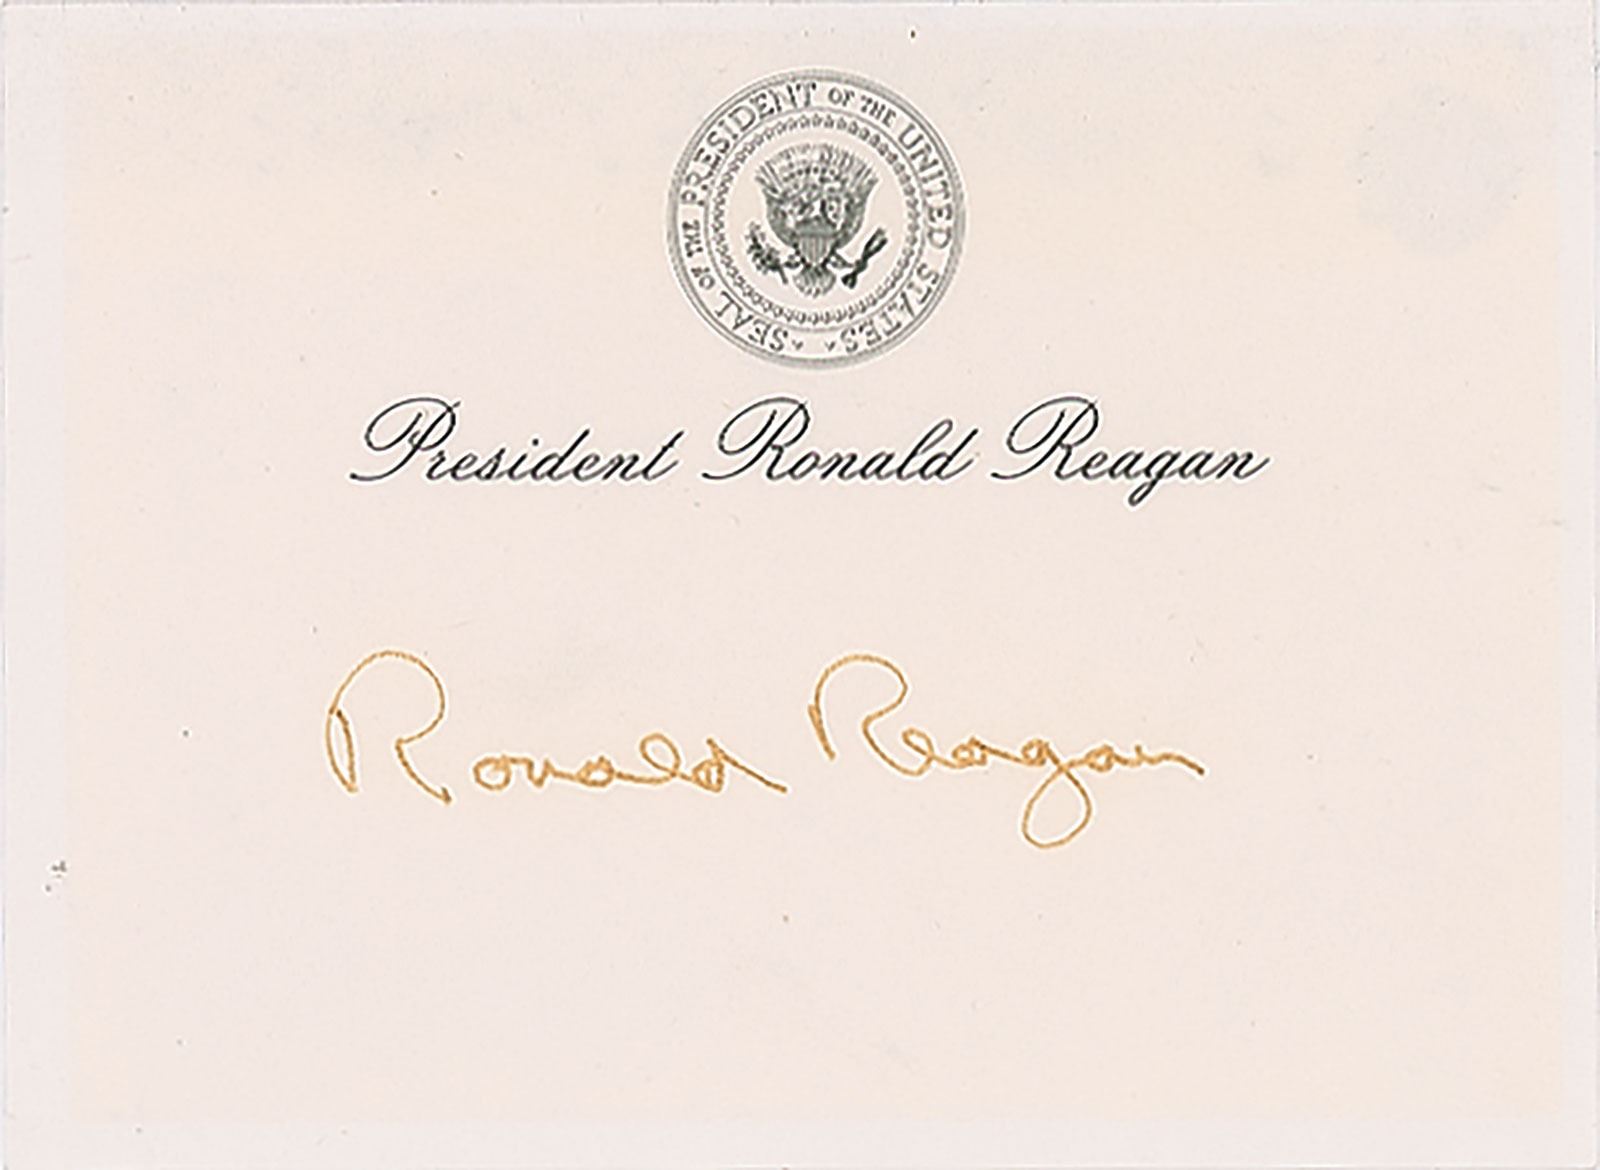 SEAL OF THE PRESIDENT OF THE UNITED STATES
President Ronald Reagan
Ronald Reagan